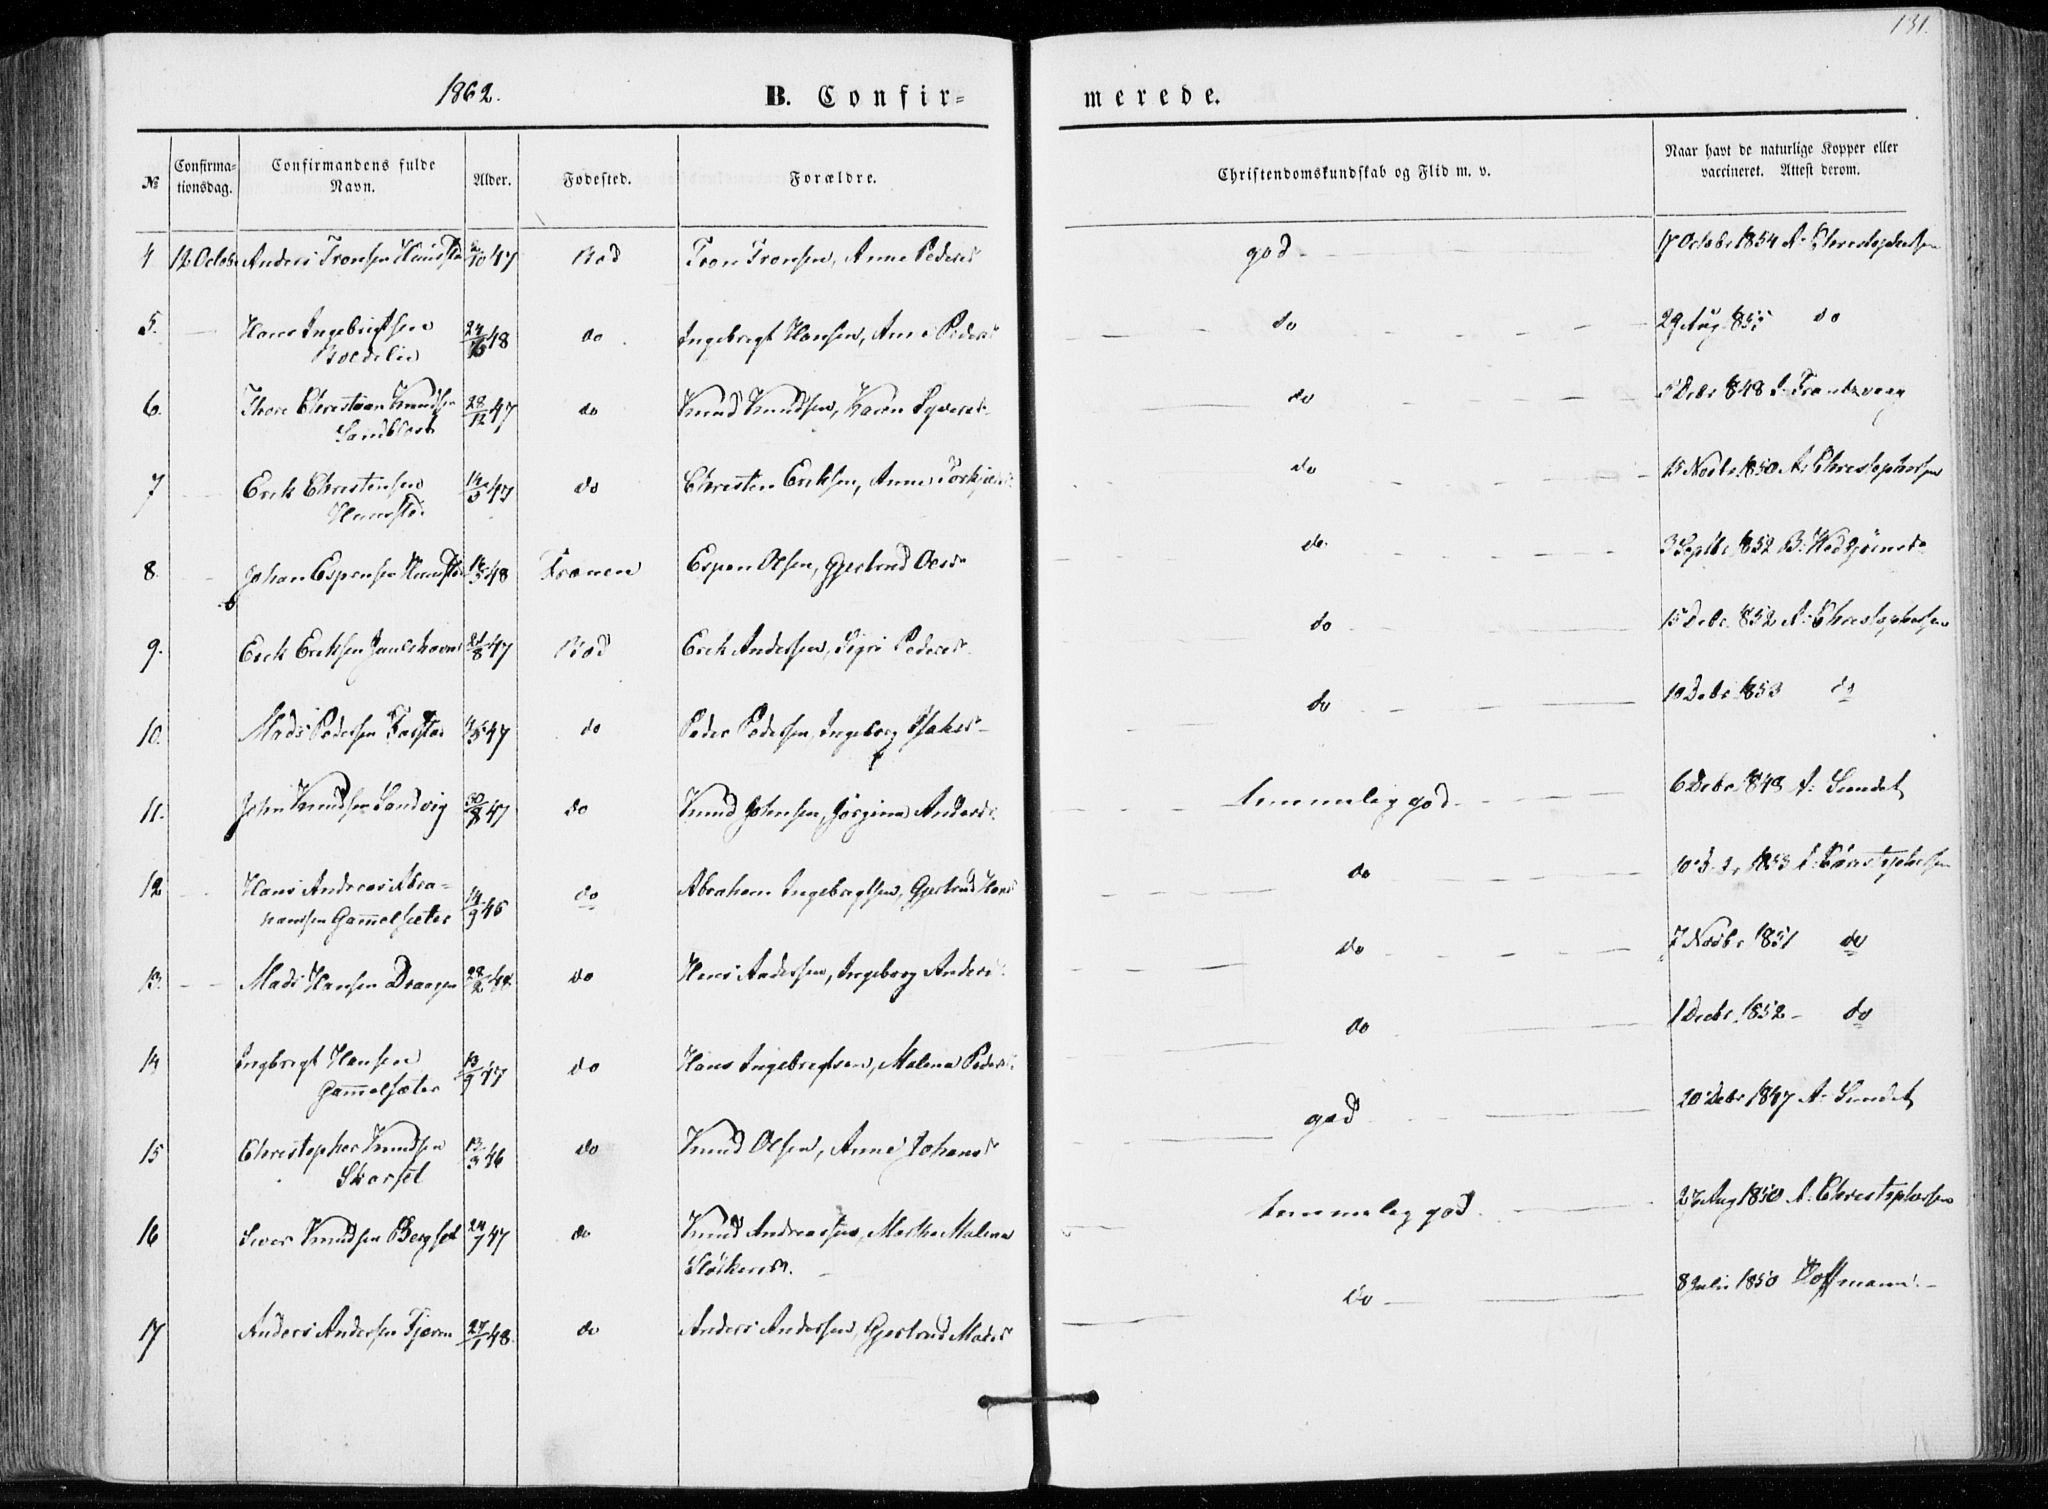 131.
1862. B. Confir= merede.
№ Confirma=tionsdag. Confirmandens fulde Navn. Alder. Fødested. Forældre. Christendomskundskab og Flid m. v. Naar havt de naturlige Kopper eller vaccineret. Attest derom.
4 12 Octob Anders Tronsen 47 Bod Tron Tronsen, Anne Pedersd god 17 Octobr 1854 A. Christophersen
5. Hans Ingebrigtsen 48 do Ingebrigt Hansen, Anne Pedersd do 29 Aug. 1855 do
6. Thore Christian Knudsen 28/12 47 do Knud Knudsen, Karen do 1848
7 Erik Christensen 14/5 47 do Christen Eriksen, Anne do 15 Novbr. 1850 A. Christophersen
8. Johan Espensen 48 Frænen Espen Olsen, Gjertrud Olesd do 3 Septbr. 1852
9. Erik Eriksen 21/8 47 Bod Erik Andersen, Sigri Pedersd. do 15 Debr. 1852 A. Christophersen
10. Mads Pedersen 47 do Peder Pedersen, Ingeborg do 10 Debr. 1853 do
11. John Knudsen Sandvig 30/8 47 do Knud Johnsen, Jørgine Andersd. temmelig god. 6 Debr. 1848 A. Sundet
12 Hans Andreas Abra=
hamsen Gammelsæter 14/9 46 do Abraham Ingebrigtsen, Gjertrud Hansd do 1853 A. Christophersen
13. Mads Hansen Draagen 28/2 48 do Hans Andersen, Ingeborg Andersd. do 7 Novbr. 1851 do
14 Ingbrigt Hansen
Gammelsæter 13/9 47 do Hans Ingebrigtsen, Malena Pedersd. do 1 Decbr. 1852 do
15 Christopher Knudsen
Skarset 13/3 46 do Knud Olsen, Anne Johansd god 20 Debr 1847 A. Sundet
16 Siver Knudsen Bergset 24/7 47 do Knud Andreassen, Marthe Malena temmelig god. 27 Aug 1850 A. Christophersen
17 Anders Andersen Tjæren 27/1 48 do Anders Andersen, Gjertrud Madsd do 8 Juli 1850 Hoffmann.